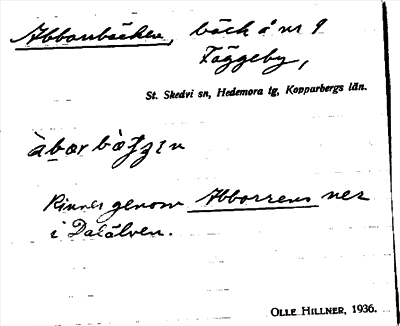 Abborrbäcken, bäck å nr 9
Täggeby,
St. Skedvi sn, Hedemora tg, Kopparbergs län.
Rinner genom Abborrens ner
i Dalälven.
OLLE HILLNER, 1936.